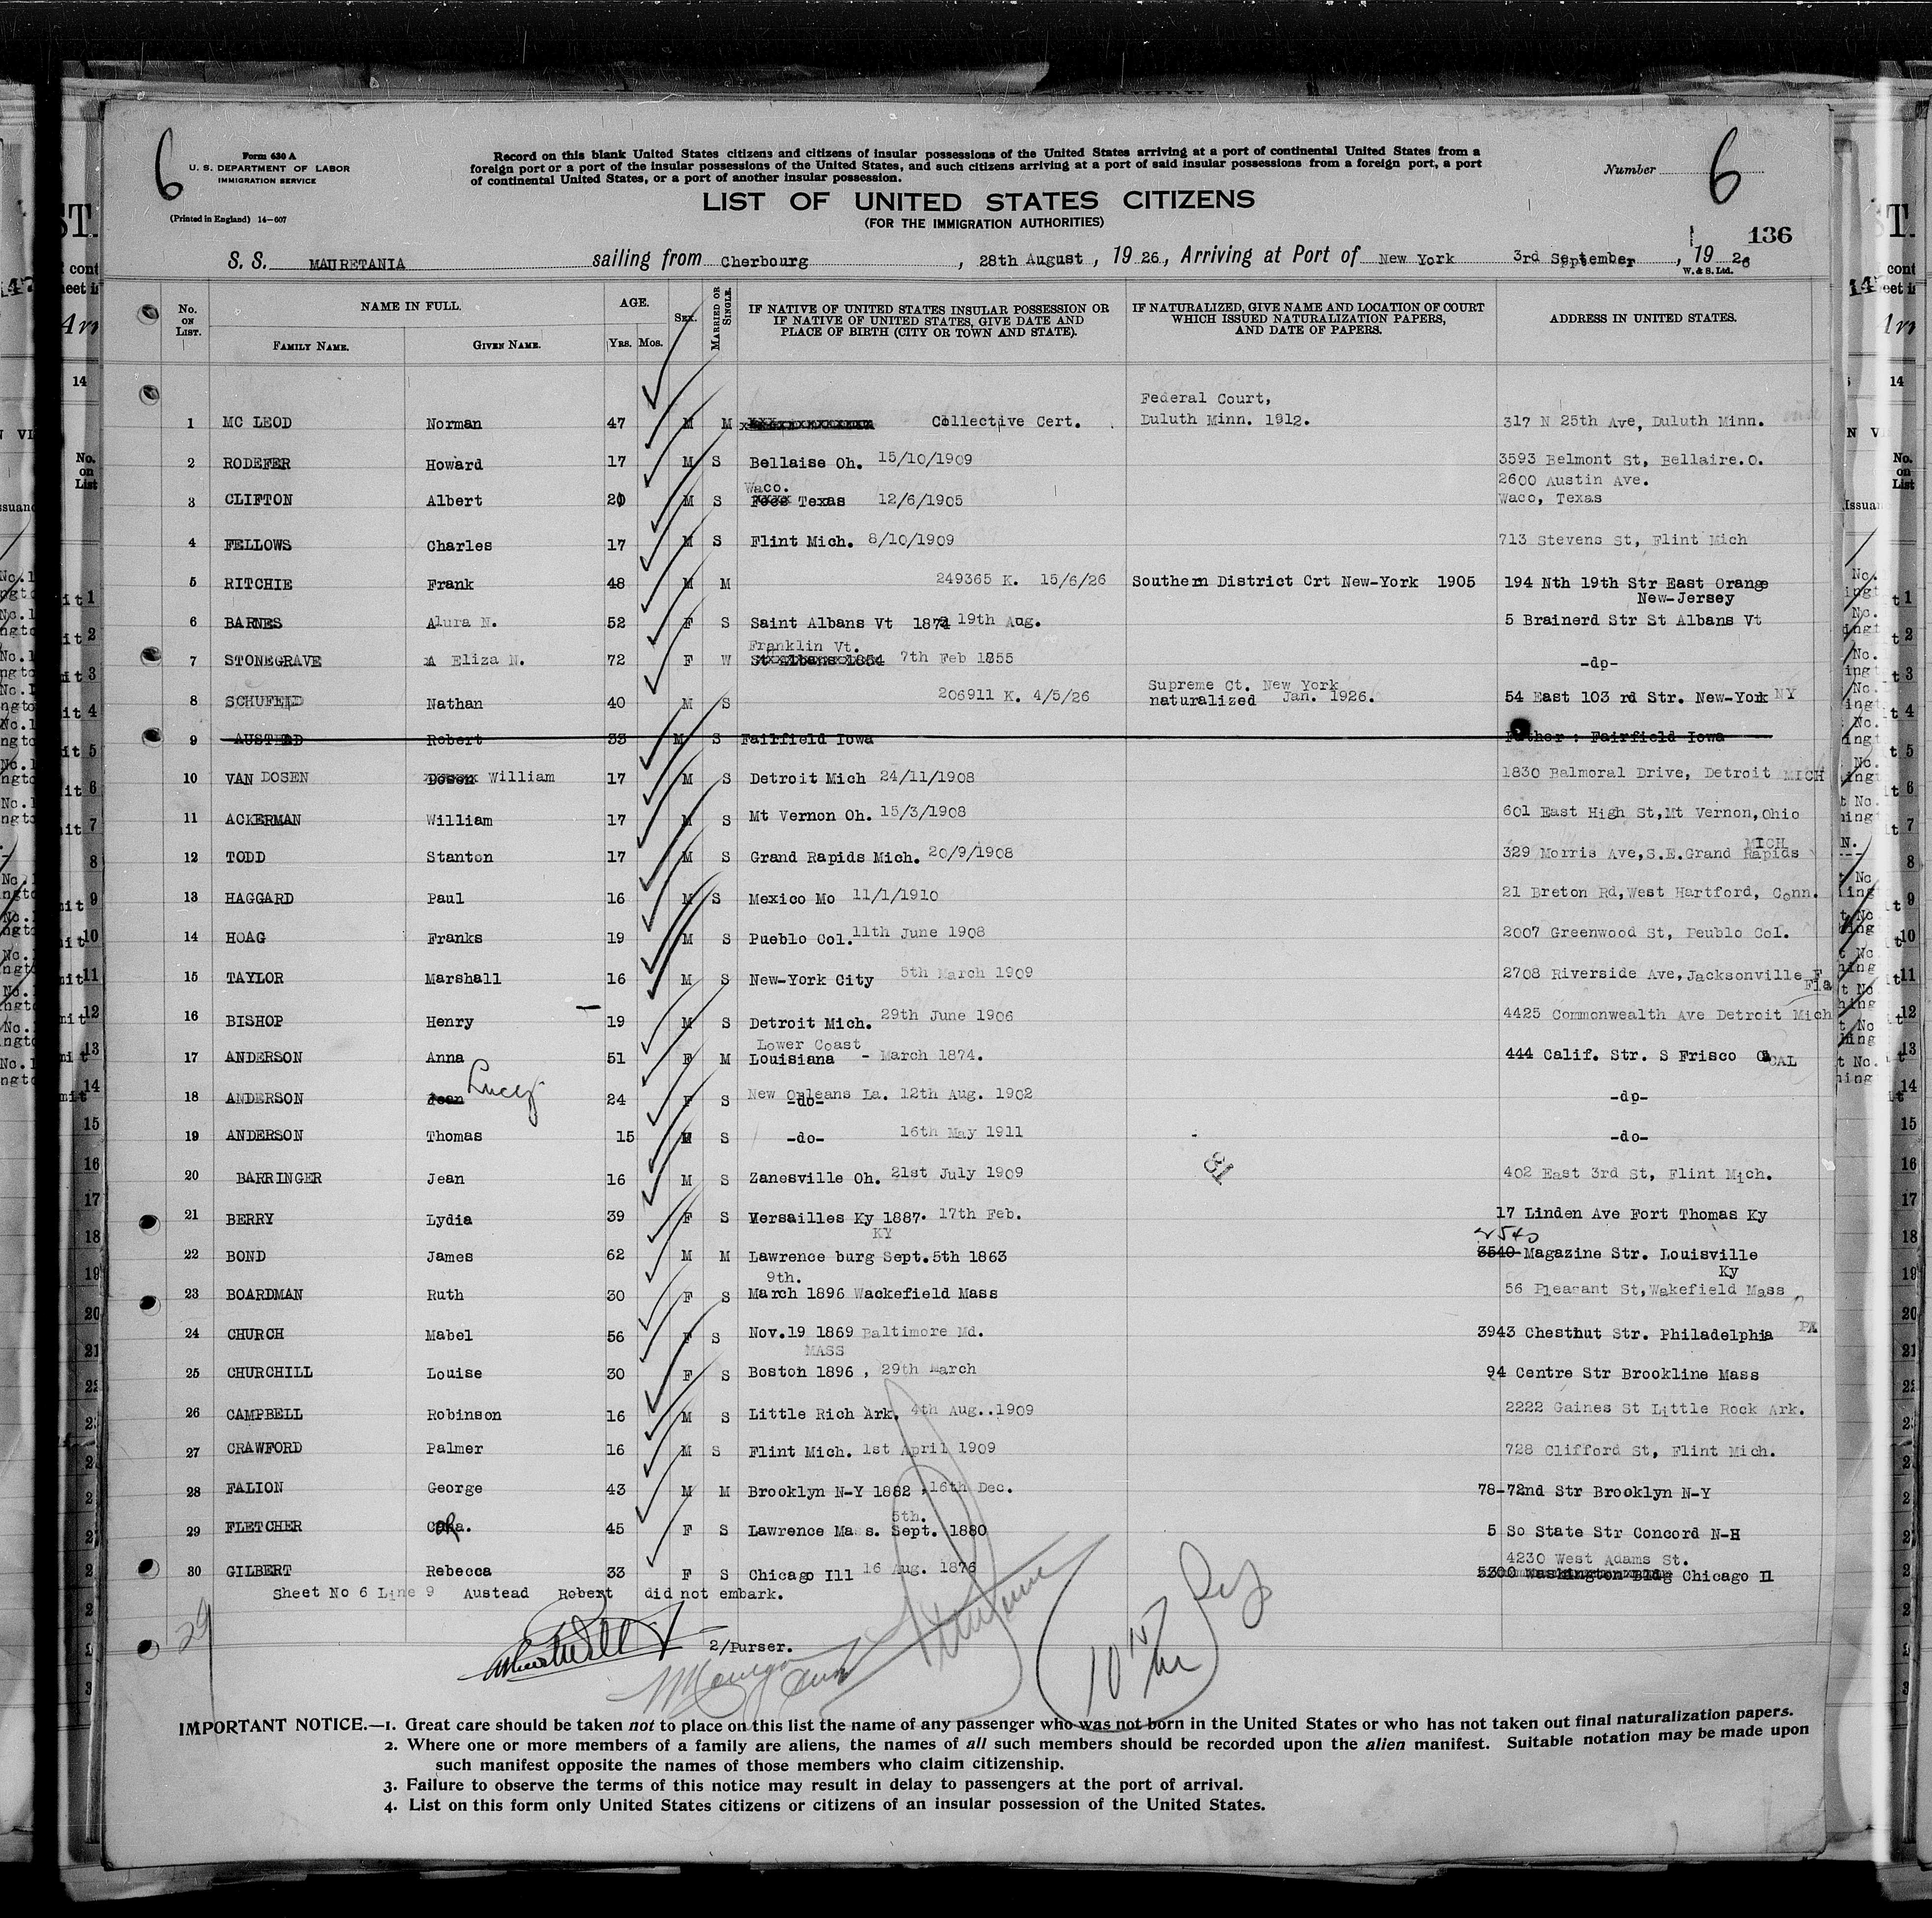 6
Form 630 A
U. S. DEPARTMENT OF LABOR
IMMIGRATION SERVICE
(Printed in England) 14—607
Record on this blank United States citizens and citizens of insular possessions of the United States arriving at a port of continental United States from a
foreign port or a port of the insular possessions of the United States, and such citizens arriving at a port of said insular possessions from a foreign port, a port
of continental United States, or a port of another insular possession.
Number 6
LIST OF UNITED STATES CITIZENS
(FOR THE IMMIGRATION AUTHORITIES)
136
S. S. MAURETANIA sailing from Cherbourg, 28th August, 1926, Arriving at Port of New York 3rd September, 1926
W. & S. Ltd.
No. on List. NAME IN FULL. AGE. Sex. Married or Single. IF NATIVE OF UNITED STATES INSULAR POSSESSION OR IF NATIVE OF UNITED STATES, GIVE DATE AND PLACE OF BIRTH (CITY OR TOWN AND STATE). IF NATURALIZED, GIVE NAME AND LOCATION OF COURT WHICH ISSUED NATURALIZATION PAPERS, AND DATE OF PAPERS. ADDRESS IN UNITED STATES.
Family Name. Given Name. Yrs. Mos.
Federal Court,
1 MC LEOD Norman 47 M M Collective Cert. Duluth Minn. 1912. 317 N 25th Ave, Duluth Minn.
2 RODEFER Howard 17 M S Bellaise Oh. 15/10/1909 3593 Belmont St, Bellaire.O.
Waco. 2600 Austin Ave.
3 CLIFTON Albert 20 M S Texas 12/6/1905 Waco, Texas
4 FELLOWS Charles 17 M S Flint Mich. 8/10/1909 713 Stevens St, Flint Mich
5 RITCHIE Frank 48 M M 249365 K. 15/6/26 Southern District Crt New-York 1905 194 Nth 19th Str East Orange
New-Jersey
6 BARNES Alura N. 52 F S Saint Albans Vt 1874 19th Aug. 5 Brainerd Str St Albans Vt
Franklin Vt.
7 STONEGRAVE Eliza N. 72 F W St Albans 1854 7th Feb 1855 -do-
Supreme Ct. New York
8 SCHUFELD Nathan 40 M S 206911 K. 4/5/26 naturalized Jan. 1926. 54 East 103 rd Str. New-York NY
9 AUSTEAD Robert 33 M S Fairfield Iowa Father : Fairfield Iowa
10 VAN DOSEN William 17 M S Detroit Mich 24/11/1908 1830 Balmoral Drive, Detroit MICH
11 ACKERMAN William 17 M S Mt Vernon Oh. 15/3/1908 601 East High St,Mt Vernon,Ohio
MICH
12 TODD Stanton 17 M S Grand Rapids Mich. 20/9/1908 329 Morris Ave,S.E.Grand Rapids
13 HAGGARD Paul 16 M S Mexico Mo 11/1/1910 21 Breton Rd,West Hartford, Conn.
14 HOAG Franks 19 M S Pueblo Col. 11th June 1908 2007 Greenwood St, Peublo Col.
15 TAYLOR Marshall 16 M S New-York City 5th March 1909 2708 Riverside Ave,Jacksonville F
Fla
16 BISHOP Henry 19 M S Detroit Mich. 29th June 1906 4425 Commonwealth Ave Detroit Mich
Lower Coast
17 ANDERSON Anna 51 F M Louisiana - March 1874. 444 Calif. Str. S Frisco CAL
Lucy
18 ANDERSON Jean 24 F S New Orleans La. -do- 12th Aug. 1902 -do-
19 ANDERSON Thomas 15 M S -do- 16th May 1911 -do-
20 BARRINGER Jean 16 M S Zanesville Oh. 21st July 1909 402 East 3rd St, Flint Mich.
21 BERRY Lydia 39 F S Versailles Ky 1887. 17th Feb. 17 Linden Ave Fort Thomas Ky
KY 2540
22 BOND James 62 M M Lawrence burg Sept.5th 1863 3540 Magazine Str. Louisville
9th. Ky
23 BOARDMAN Ruth 30 F S March 1896 Wackefield Mass 56 Pleasant St,Wakefield Mass
24 CHURCH Mabel 56 F S Nov.19 1869 Baltimore Md. 3943 Chestnut Str. Philadelphia PA
MASS
25 CHURCHILL Louise 30 F S Boston 1896 , 29th March 94 Centre Str Brookline Mass
26 CAMPBELL Robinson 16 M S Little Rich Ark. 4th Aug..1909 2222 Gaines St Little Rock Ark.
27 CRAWFORD Palmer 16 M S Flint Mich. 1st April 1909 728 Clifford St, Flint Mich.
28 FALION George 43 M M Brooklyn N-Y 1882 ,16th Dec. 78-72nd Str Brooklyn N-Y
5th.
29 FLETCHER 45 F S Lawrence Mass. Sept. 1880 5 So State Str Concord N-H
4230 West Adams St.
30 GILBERT Rebecca 33 F S Chicago Ill 16 Aug. 1876 5300 Washington Bldg Chicago Il
Sheet No 6 Line 9 Austead Robert did not embark.
29
2/Purser.
IMPORTANT NOTICE.—1. Great care should be taken not to place on this list the name of any passenger who was not born in the United States or who has not taken out final naturalization papers.
2. Where one or more members of a family are aliens, the names of all such members should be recorded upon the alien manifest. Suitable notation may be made upon
such manifest opposite the names of those members who claim citizenship.
3. Failure to observe the terms of this notice may result in delay to passengers at the port of arrival.
4. List on this form only United States citizens or citizens of an insular possession of the United States.